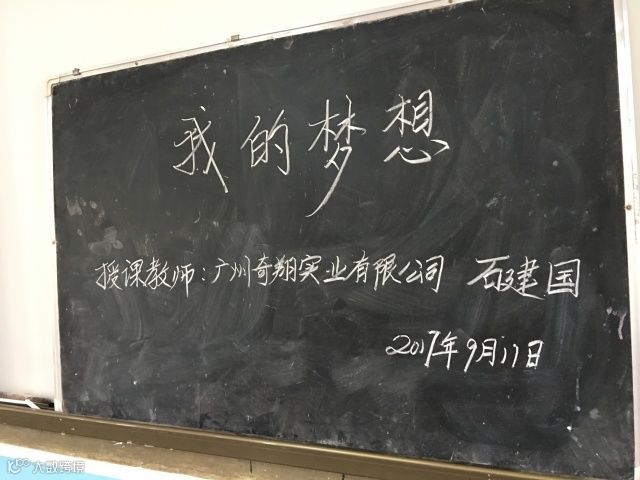 我的梦想
授课教师：广州奇翔实业有限公司 石建国
2017年9月17日
大数跨境